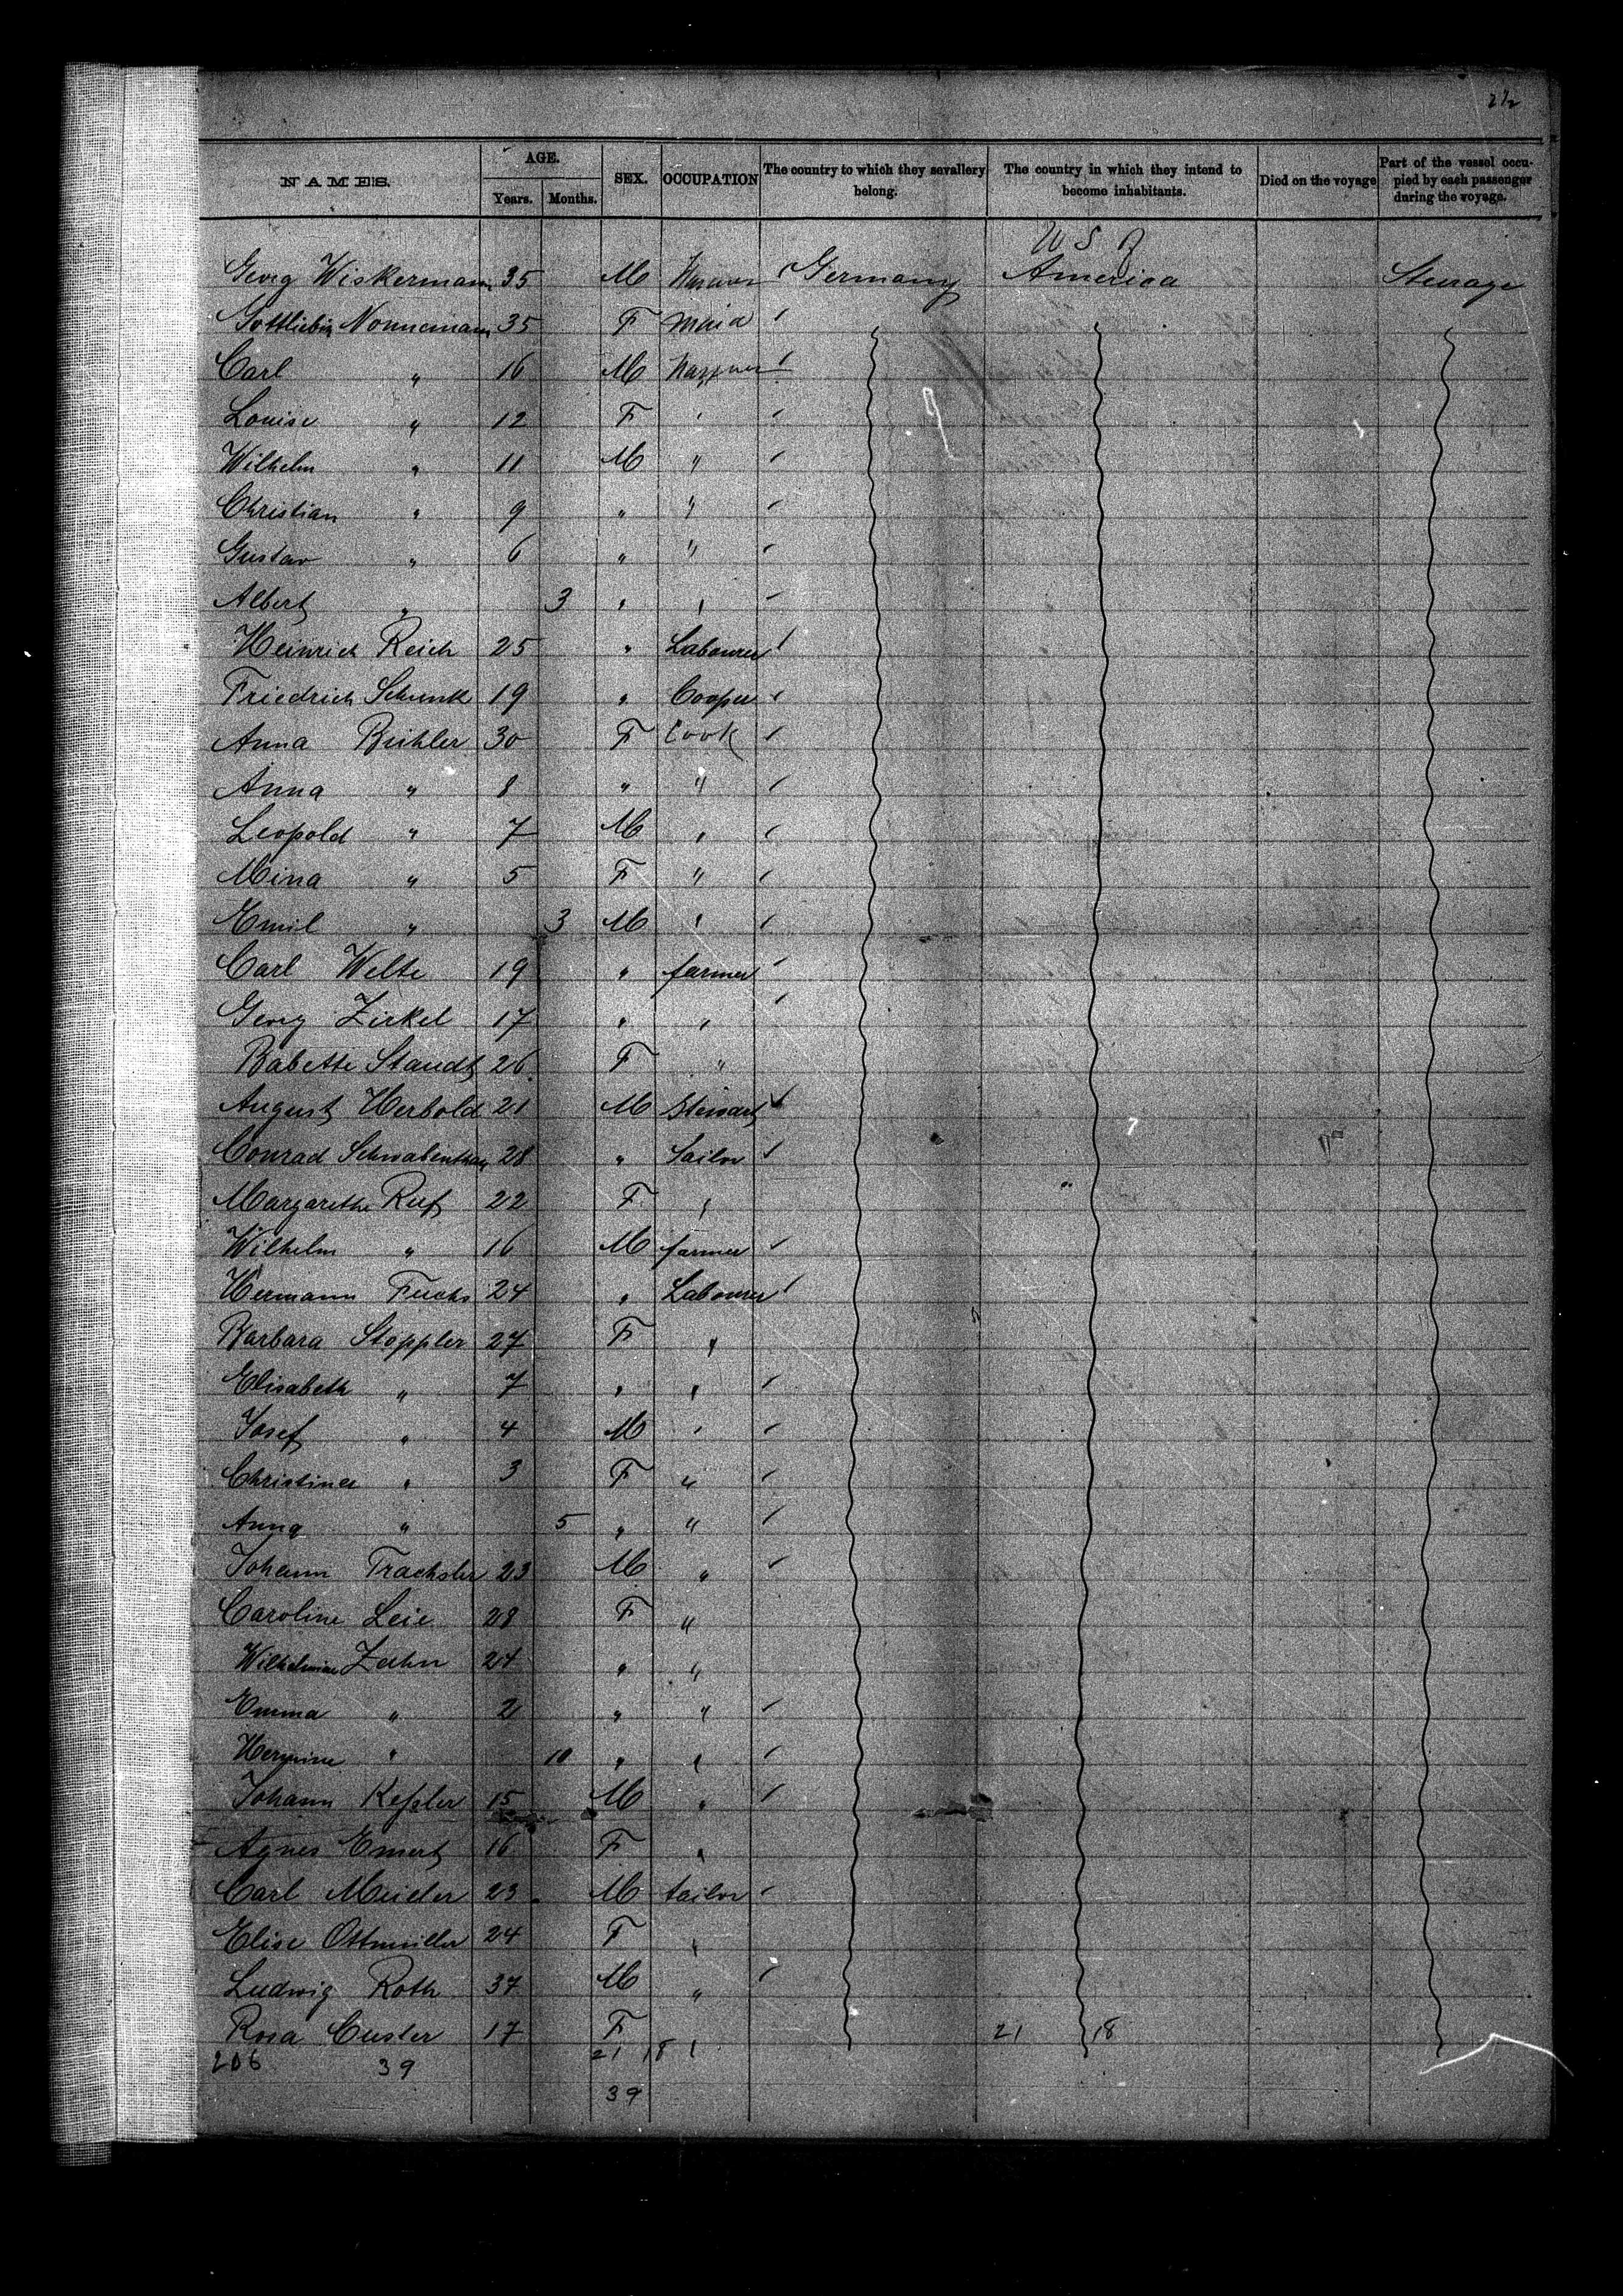 NAMES. AGE. SEX. OCCUPATION The country to which they sevallery belong. The country in which they intend to become inhabitants. Died on the voyage Part of the vessel occupied by each passenger during the voyage.
Years. Months.
U S A
Georg Wiskermann 35 M Germany America Steerage
Gottliebin Nonnemann 35 F Maid
Carl " 16 M
Louise " 12 F "
Wilhelm " 11 M "
Christian " 9 " "
Gustav " 6 " "
Albert " 3 " "
Heinrich Reich 25 " Labourer
Friedrich Schunk 19 " Cooper
Anna Buhler 30 F Cook
Anna " 8 " "
Leopold " 7 M "
Mina " 5 F "
Emil " 3 M "
Carl Welte 19 " farmer
Georg Zirkel 17 " "
Babette Staudt 26 F "
August Herbold 21 M Stewart
Conrad Schwabenthan 28 " Sailor
Margarethe Ruf 22 F "
Wilhelm " 16 M farmer
Hermann Fuchs 24 " Labourer
Barbara Stoppler 27 F "
Elisabeth " 7 " "
Josef " 4 M "
Christina " 3 F "
Anna " 5 " "
Johann Trachsler 23 M "
Caroline Leie 28 F "
Wilhelmine Zahn 24 " "
Emma " 2 " "
Hermine " 10 " "
Johann Keßler 15 M "
Agnes Emert 16 F "
Carl Meider 23 M tailor
Elise Ottmüller 24 F "
Ludwig Roth 37 M "
Rosa Cusler 17 F " 21 18
206 39 21 18
39